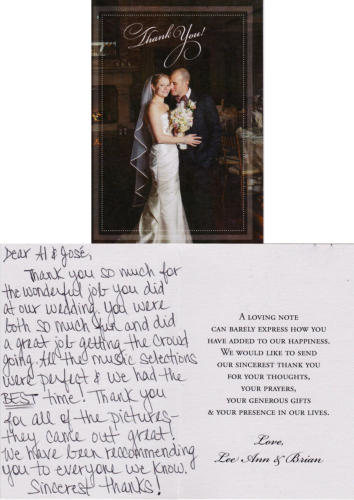 Thank You!
Dear Al & José,
Thank you so much for
the wonderful job you did
at our wedding. You were
both so much fun and did
a great job getting the crowd
going. All the music selections
were perfect & we had the
BEST time! Thank you
for all of the pictures-
they came out great!
We have been recommending
you to everyone we know.
Sincerest thanks!
A LOVING NOTE
CAN BARELY EXPRESS HOW YOU
HAVE ADDED TO OUR HAPPINESS.
WE WOULD LIKE TO SEND
OUR SINCEREST THANK YOU
FOR YOUR THOUGHTS,
YOUR PRAYERS,
YOUR GENEROUS GIFTS
& YOUR PRESENCE IN OUR LIVES.
Love,
Lee Ann & Brian